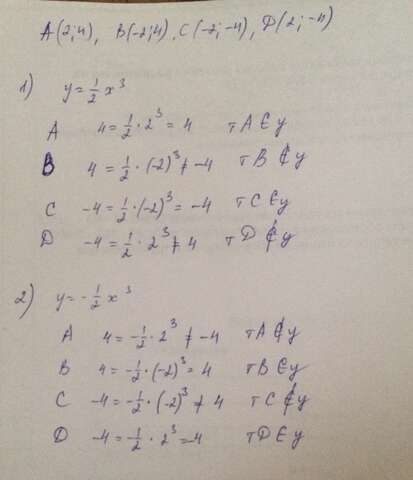 A(2;4), B(-2;4), C(-2;-4), D(2;-4)
1) y=½x³
A 4=½·2³=4 тA∈y
B 4=½·(-2)³≠-4 тB∉y
C -4=½·(-2)³=-4 тC∈y
D -4=½·2³≠4 тD∉y
2) y=-½x³
A 4=-½·2³≠-4 тA∉y
B 4=-½·(-2)³=4 тB∈y
C -4=-½·(-2)³≠4 тC∉y
D -4=-½·2³=-4 тD∈y